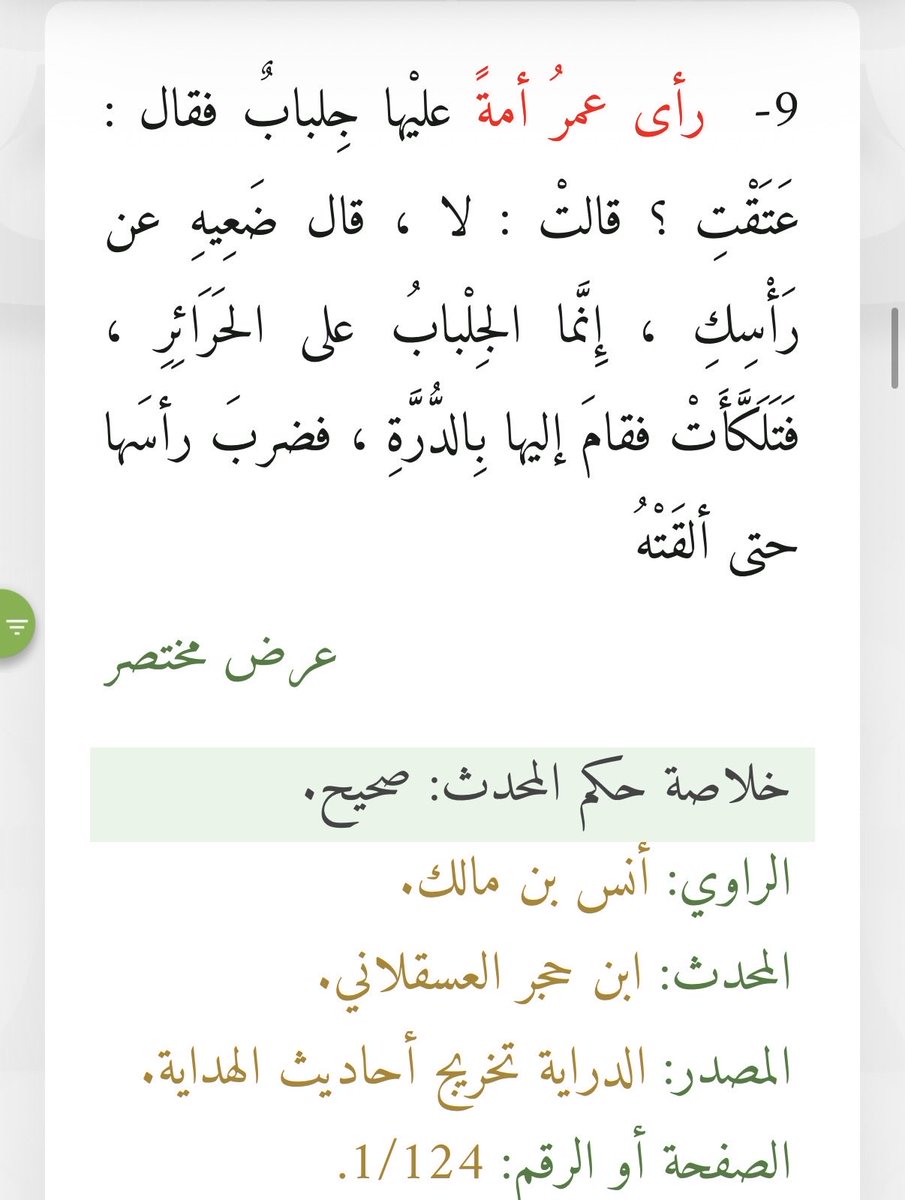 9- رأى عمرُ أمةً عليْها جِلبابٌ فقال :
عَتَقْتِ ؟ قالتْ : لا ، قال ضَعِيهِ عن
رَأْسِكِ ، إِنَّما الجِلْبابُ على الحَرَائِرِ ،
فَتَلَكَّأَتْ فقامَ إليها بِالدُّرَّةِ ، فضربَ رأسَها
حتى ألقَتْهُ
عرض مختصر
خلاصة حكم المحدث: صحيح.
الراوي: أنس بن مالك.
المحدث: ابن حجر العسقلاني.
المصدر: الدراية تخريج أحاديث الهداية.
الصفحة أو الرقم: 1/124.